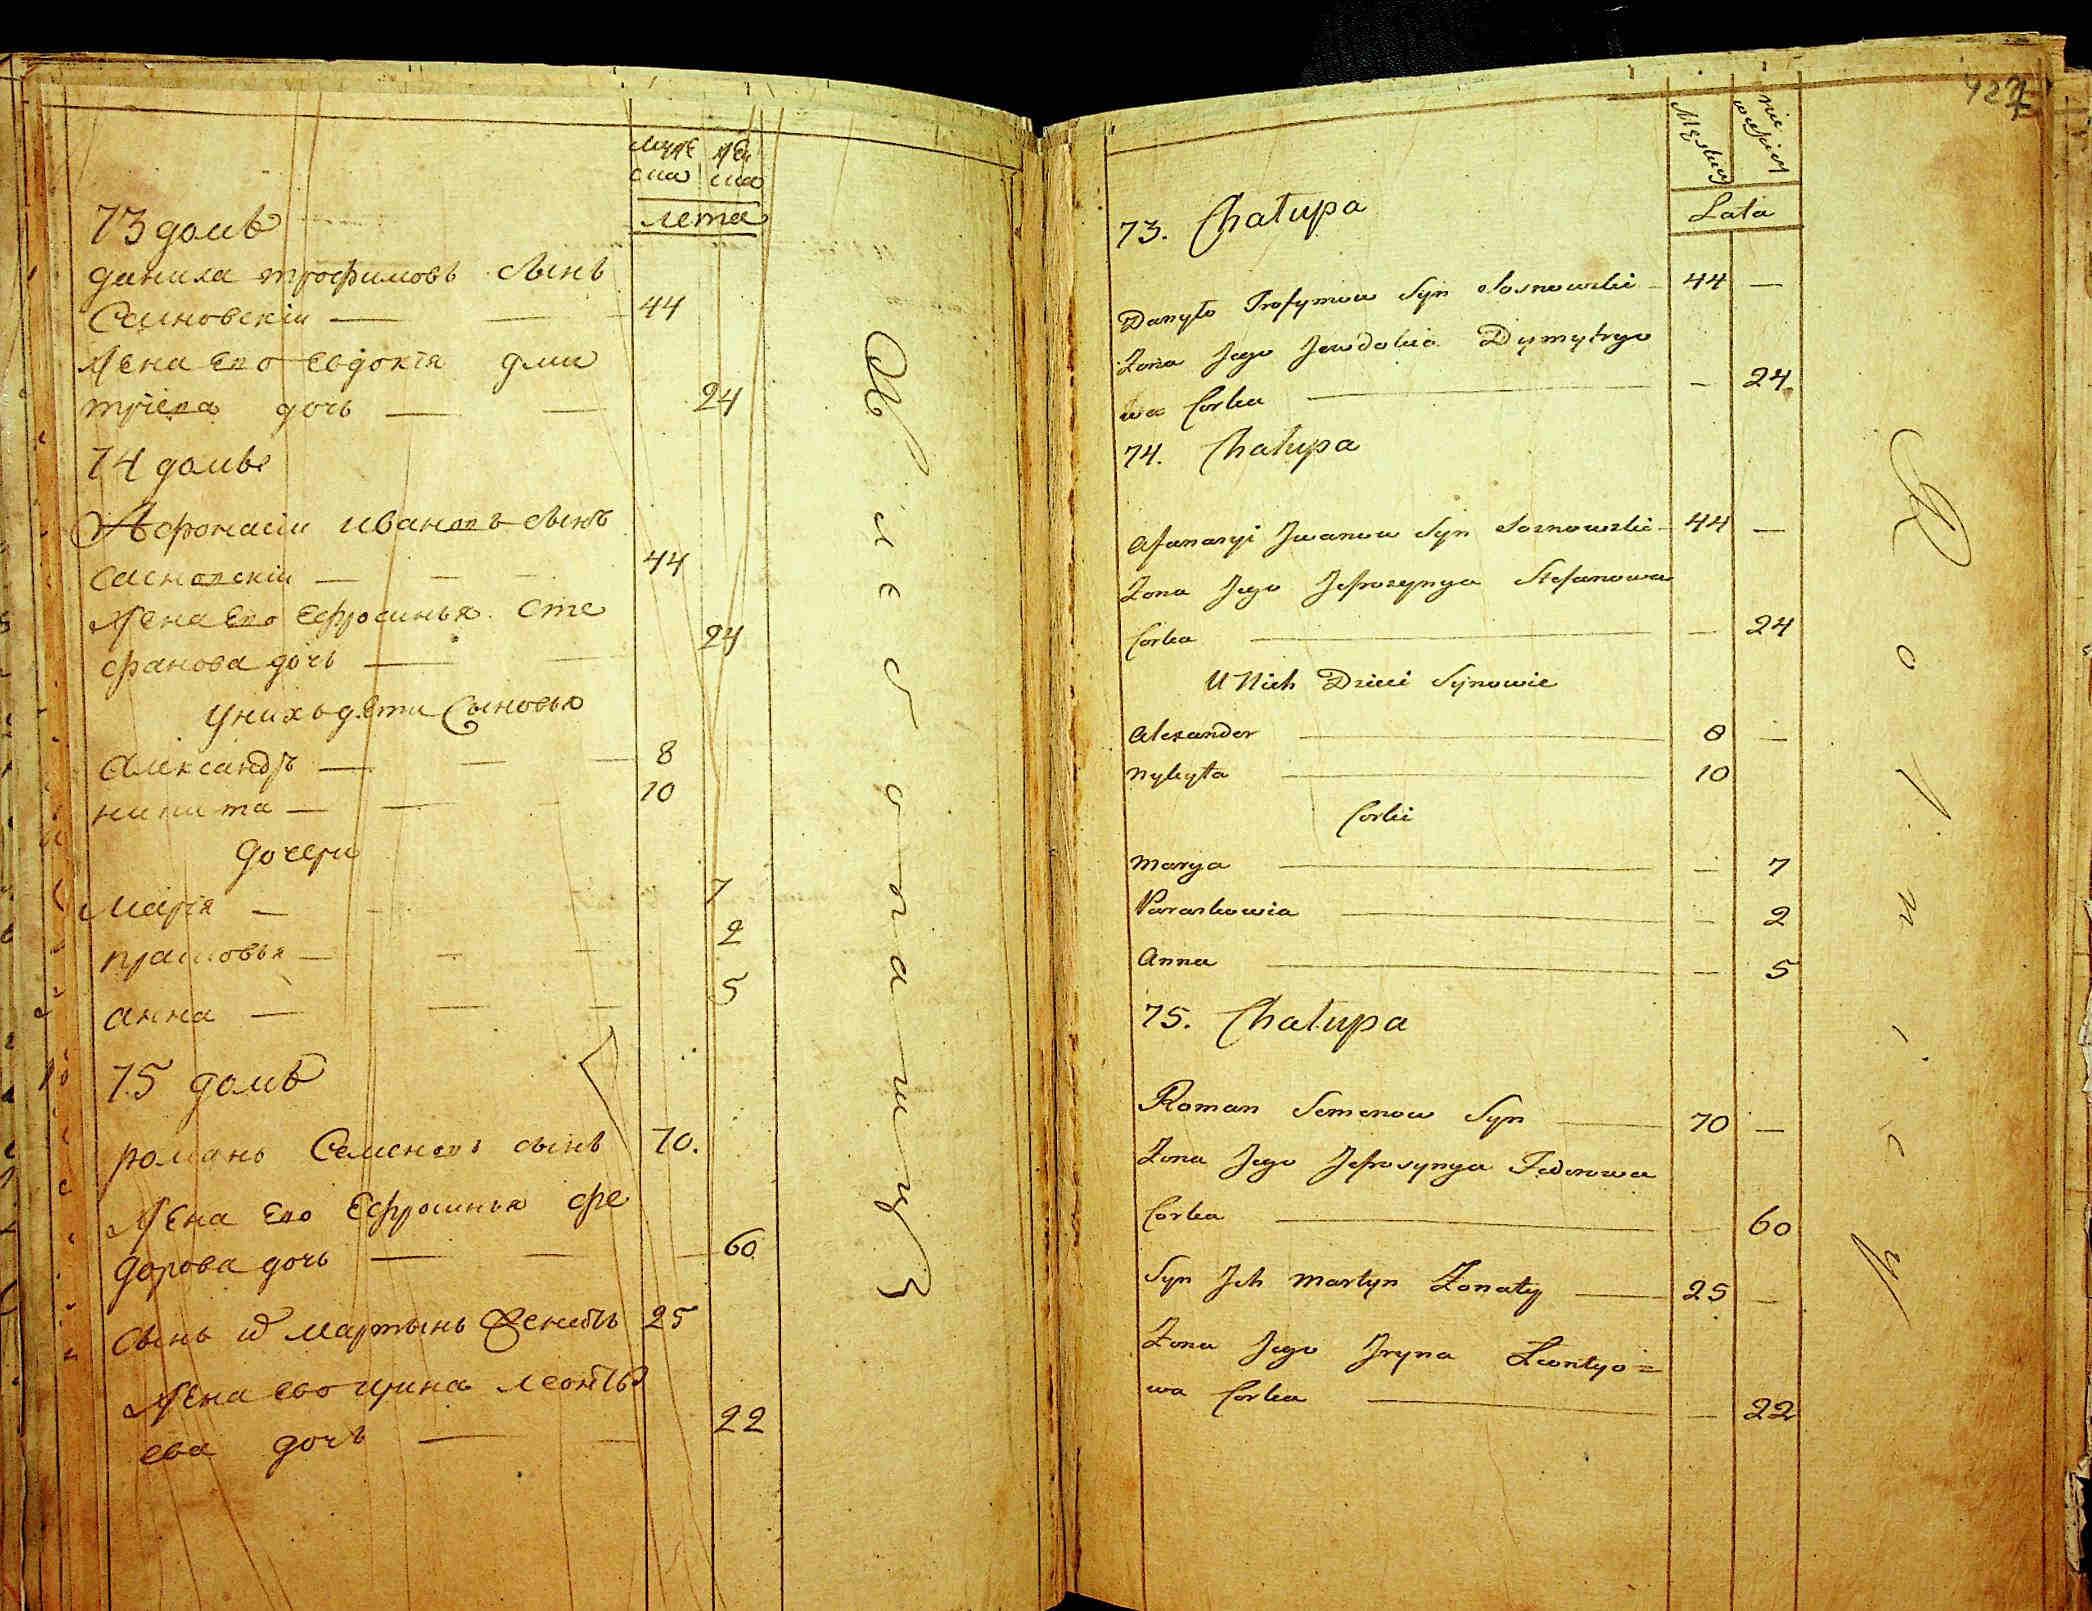 муже
ска
жен
ска
лета
73 домъ
данила трофимовъ сынъ
Сасновскій — 44
жена Его Евдокїя дми
трїева дочь — 24
74 домъ
Афонасіи Ивановъ сынъ
сасновскіи — 44
жена Его Ефросинья Сте
фанова дочь — 24
у нихъ дѣти Сыновья
александръ — 8
никита — 10
дочери
марїя — 7
прасковья — 2
анна — 5
75 домъ
романъ Семеновъ сынъ 70.
жена Его Ефросинья фе
дорова дочь — 60
сынъ их мартынъ женатъ 25
жена его ирина леонтъ
ева дочь — 22
Хлебопашцы
427
Męskiey
nie
wieskiey
Lata
73. Chałupa
Danyło Trofymow Syn Sosnowski — 44 —
Żona Jego Jewdokia Dymytryo
wa Corka — — 24
74. Chałupa
Afanasyi Jwanow Syn Sosnowski — 44 —
Żona Jego Jefrozynya Stefanowa
Corka — — 24
U Nich Dzieci Synowie
Alexander — 8 —
Nykyta — 10
Corki
Marya — — 7
Paraskowia — — 2
Anna — — 5
75. Chałupa
Roman Semenow Syn — 70 —
Żona Jego Jefrosynya Fedorowa
Corka — — 60
Syn Jch Martyn Żonaty — 25 —
Żona Jego Jryna Leontyo=
wa Corka — — 22
Rolnicy